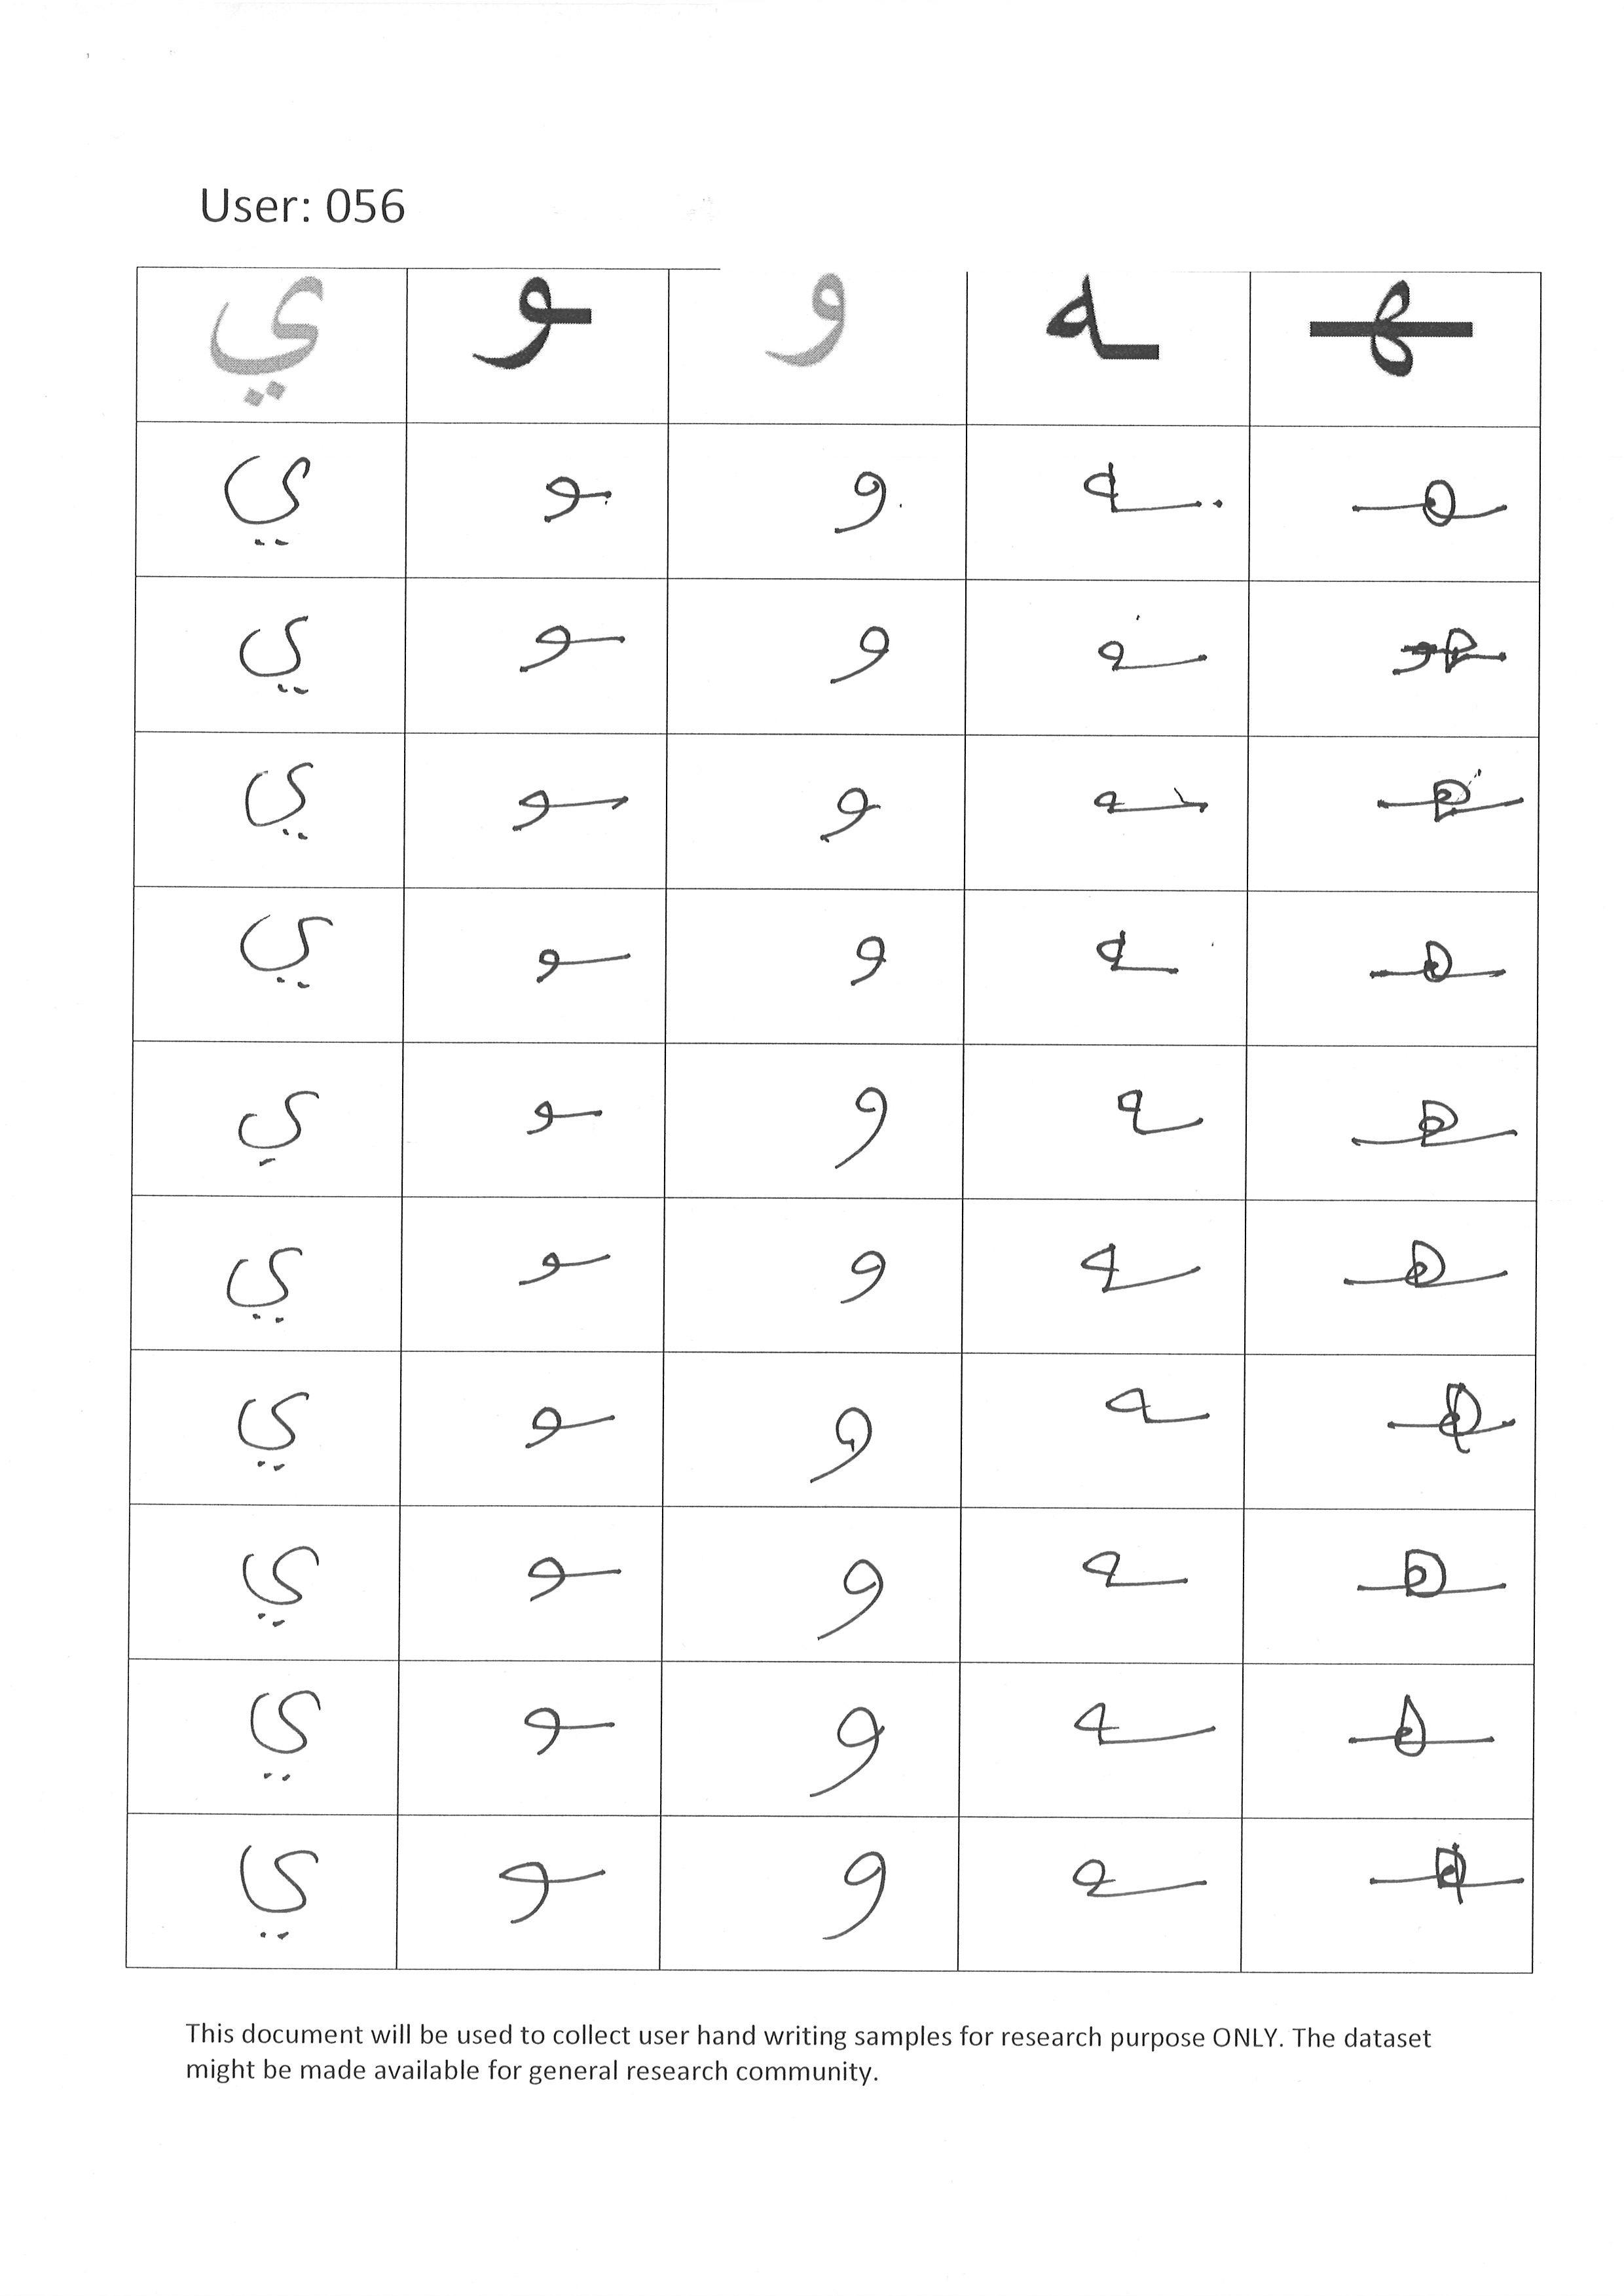 User: 056
ي ـو و ـه ـهـ
ي ـو و ـه ـهـ
ي ـو و ـه
ي ـو و ـه ـهـ
ي ـو و ـه ـهـ
ي ـو و ـه ـهـ
ي ـو و ـه ـهـ
ي ـو و ـه ـهـ
ي ـو و ـه ـهـ
ي ـو و ـه ـهـ
ي ـو و ـه ـهـ
This document will be used to collect user hand writing samples for research purpose ONLY. The dataset
might be made available for general research community.